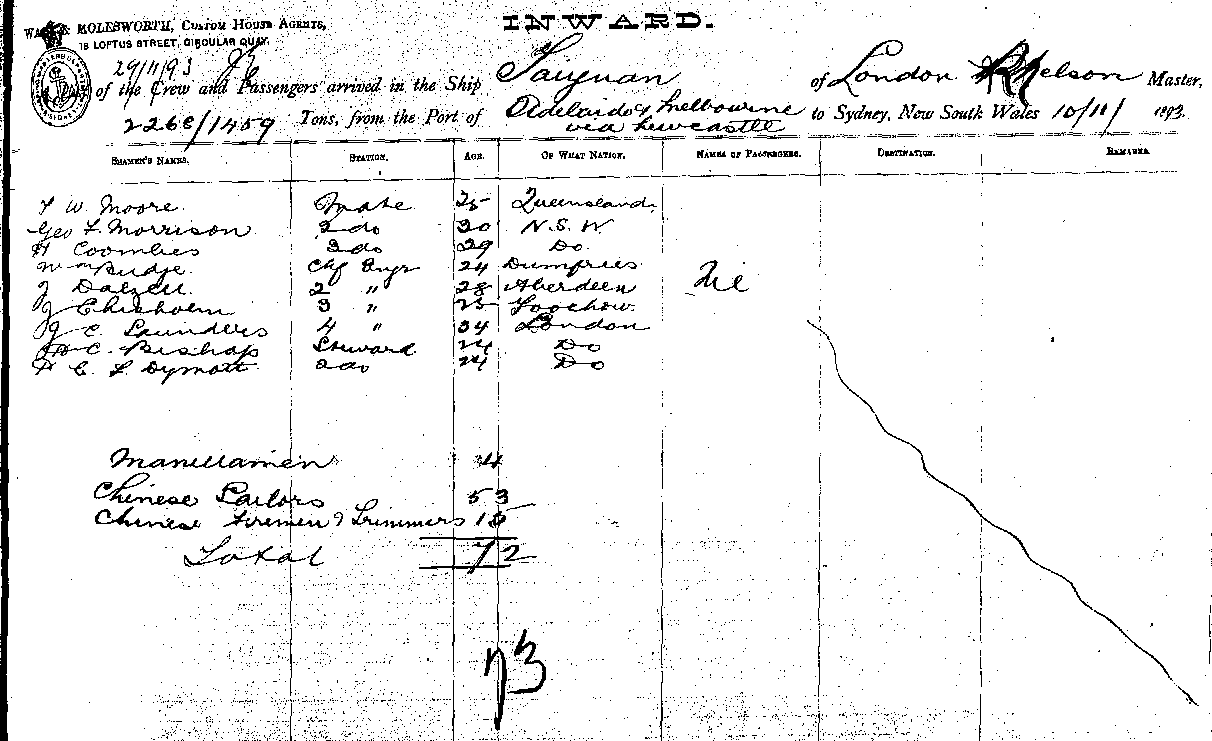 INWARD.
MOLESWORTH, CUSTOM HOUSE AGENTS,
18 LOFTUS STREET, CIRCULAR QUAY.
29/11/93
of the Crew and Passengers arrived in the Ship Taiyuan of London R Nelson Master,
2268/1459 Tons, from the Port of Adelaide & Melbourne via Newcastle to Sydney, New South Wales 10/11/ 1893.
SEAMEN'S NAMES. STATION. AGE. OF WHAT NATION. NAMES OF PASSENGERS. DESTINATION. REMARKS
T W. Moore Mate 25 Queensland.
Geo F. Morrison 2 do 30 N.S.W
H Coombes 3 do 29 Do.
Wm Budge Chf Engr 24 Dumfries
J Dalzell 2 " 28 Aberdeen Nil
J Chisholm 3 " 25 Foochow
J C. Saunders 4 " 34 London
H C. Bishop Steward 24 Do
H C. F. Dymott 2 do 24 Do
Manillamen 4
Chinese Sailors 53
Chinese Firemen & Trimmers 15
Total 72
73